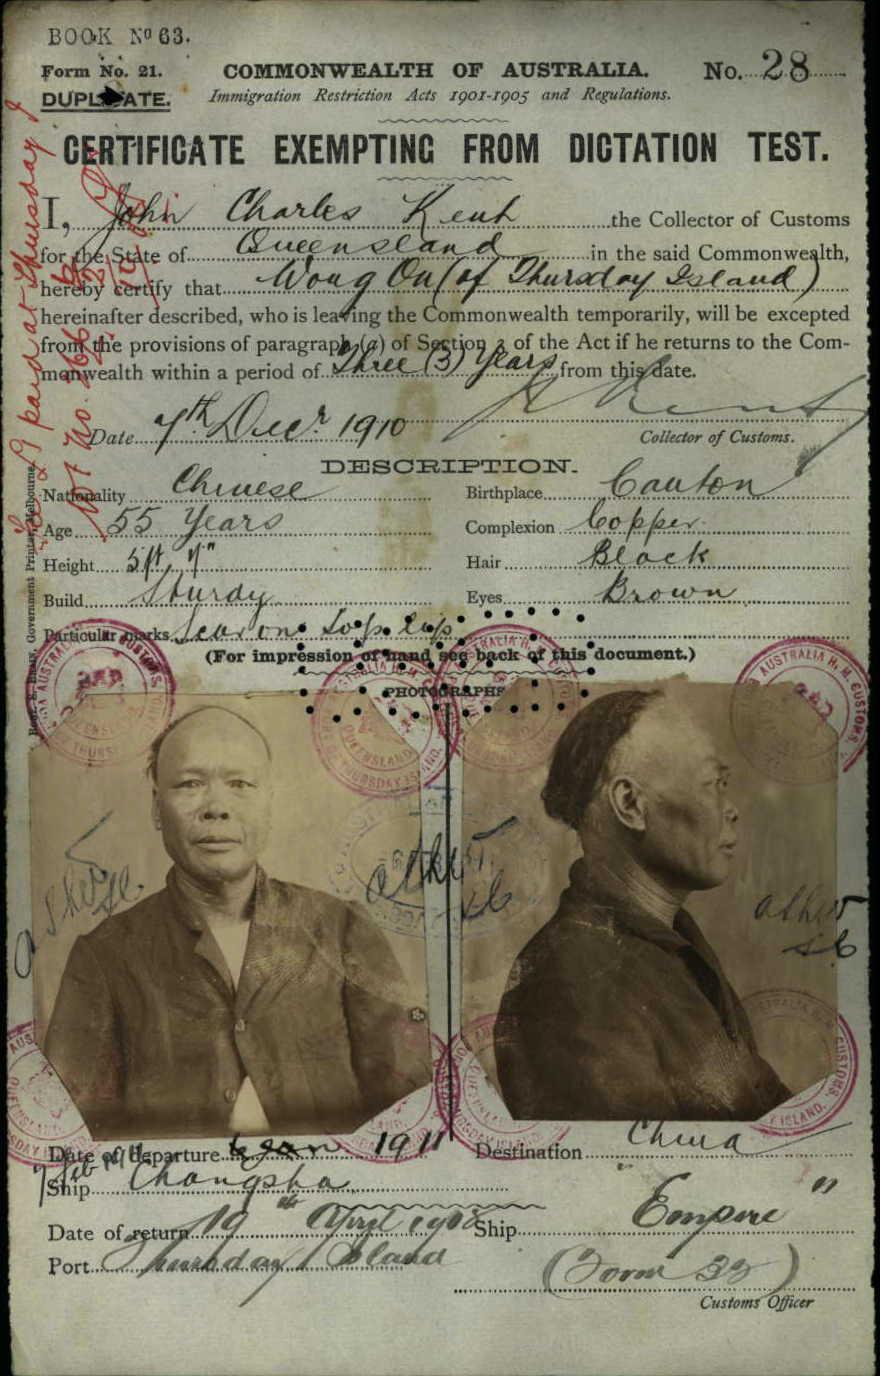 BOOK No 63.
Form No. 21.
COMMONWEALTH OF AUSTRALIA.
No. 28
DUPLICATE.
Immigration Restriction Acts 1901-1905 and Regulations.
CERTIFICATE EXEMPTING FROM DICTATION TEST.
I, John Charles Kent the Collector of Customs
for the State of Queensland in the said Commonwealth,
hereby certify that Wong On (of Thursday Island)
hereinafter described, who is leaving the Commonwealth temporarily, will be excepted
from the provisions of paragraph (a) of Section 3 of the Act if he returns to the Com-
monwealth within a period of Three (3) Years from this date.
Date 7th Decr. 1910
Collector of Customs.
DESCRIPTION.
Nationality Chinese
Birthplace Canton
Age 55 Years
Complexion Copper
Height 5ft 7"
Hair Black
Build Sturdy
Eyes Brown
Particular marks Scar on top lip
(For impression of hand see back of this document.)
PHOTOGRAPHS
Date of departure 1911
Destination China
7 Feb
Ship Changsha
Date of return 19th April
Ship Empire
Port Thursday Island
(Form 32)
Customs Officer
Government Printer, Melbourne
paid at Thursday I